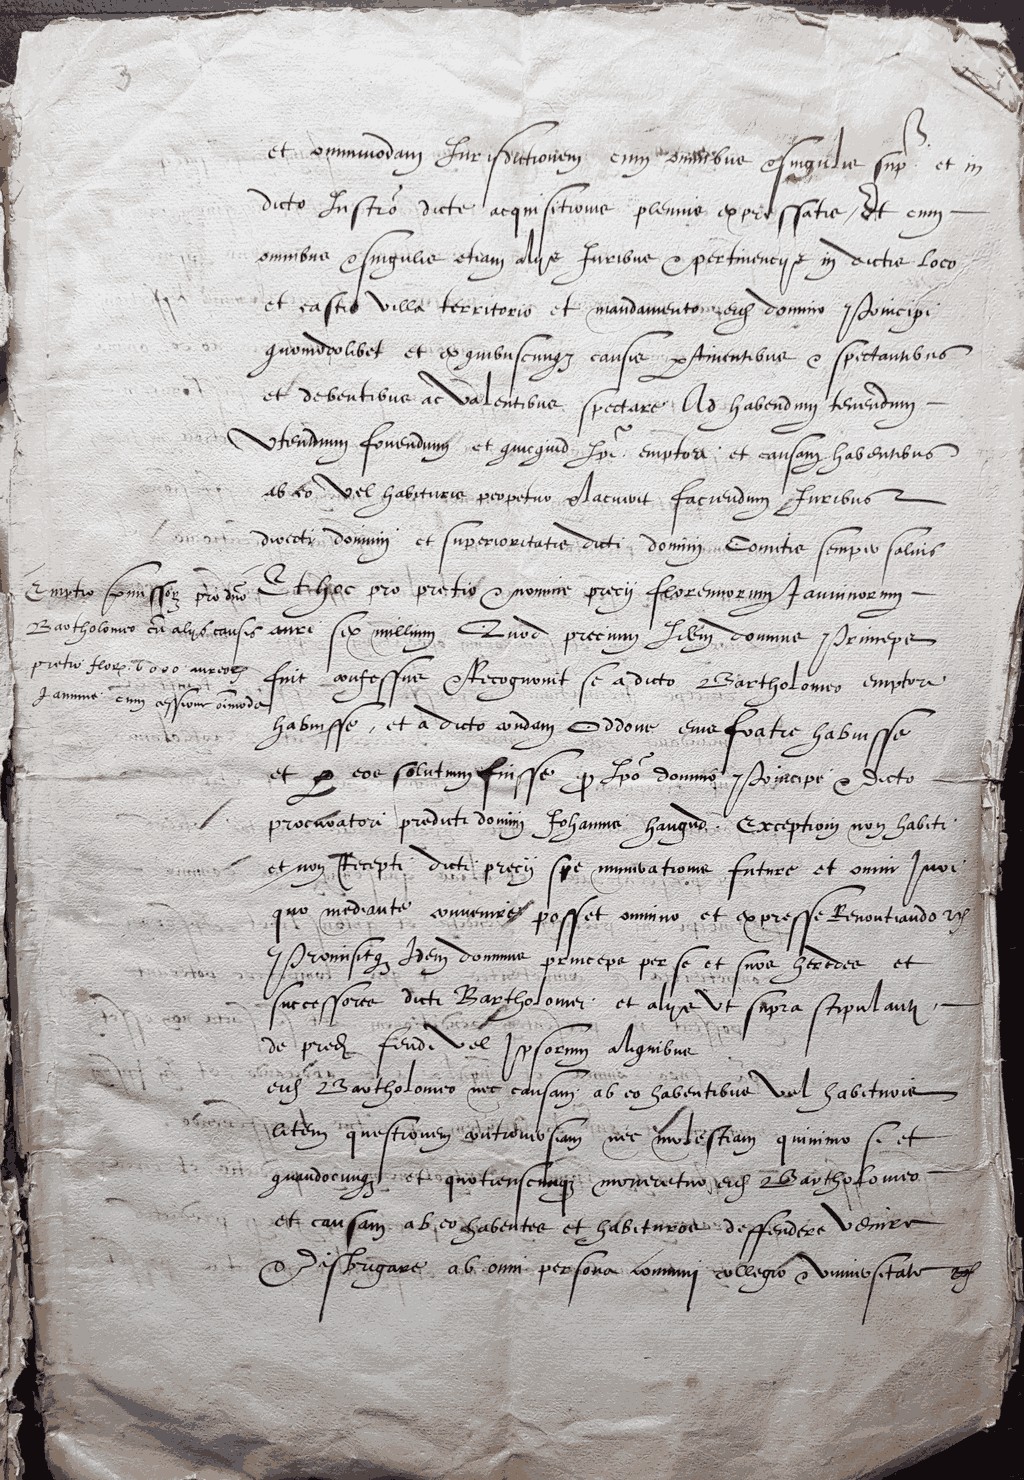 3
et omnimodam Jurisdictionem cum omnibus & singulis sup. et in
dicto Instrō dicte acquisitionis plenius expressatis / Et cum
omnibus & singulis etiam aliis Juribus & pertinenciis in dictis loco
et castro villa territorio et mandamento eidem domino Principi
quomodolibet et ex quibuscunq causis pertinentibus & spectantibus
et debentibus ac valentibus spectare Ad habendum tenendum
Utendum fovendum et quicquid Ipi emptori et causam habentibus
ab eo vel habituris perpetuo placuerit faciendum Juribus
directi dominii et superioritatis dicti domini Comitis semper salvis
Et hoc pro pretio & nomine precii florenorum Januinorum
auri sex millium Quod precium Idem dominus Princeps
fuit confessus & Recognovit se a dicto Bartholomeo emptore
habuisse, et a dicto condam Oddone eius fratre habuisse
et per eos solutum fuisse Ipō domino Principi & dicto
procuratori predicti domini Johannis Exceptioni non habiti
et non Recepti dicti precii spe numerationis future et omni Juri
quo mediante convenire posset omnino et expresse Renontiando
Promisitq Idem dominus princeps per se et suos heredes et
successores dicti Bartholomei et aliis ut supra stipulanti
de pred feudi vel Ipsorum aliquibus
eid Bartholomeo nec causam ab eo habentibus vel habituris
litem questionem controversiam nec molestiam quinimo si et
quandocunq et quotienscunq moveretur eid Bartholomeo
et causam ab eo habentes et habituros deffendere venire
& Disbrigare ab omni persona comuni collegio & universitate
Emptio premissor pro dno
Bartholomeo cū aliis causis
pretio flor. 6000 aureor
Januine cum cessione oīmoda